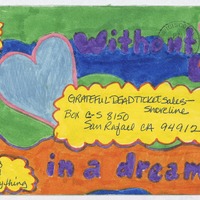 Without
GRATEFUL DEAD TICKET Sales-
Shoreline
Box C-S 8150
San Rafael CA 94912
in a dream